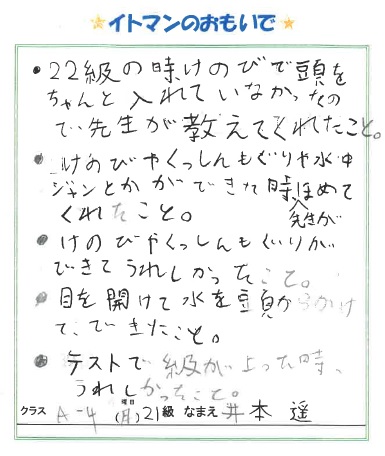 イトマンのおもいで
・22級の時けのびで頭を
ちゃんと入れていなかったの
で先生が教えてくれたこと。
・けのびやくっしんもぐりや水中
ジャンとかができた時ほめて
くれたこと。 先生が
・けのびやくっしんもぐりが
できてうれしかったこと。
・目を開けて水を頭からかけ
て、できたこと。
・テストで級が上った時、
うれしかったこと。
クラス A-4 曜日(月) 21級 なまえ 井本 遥